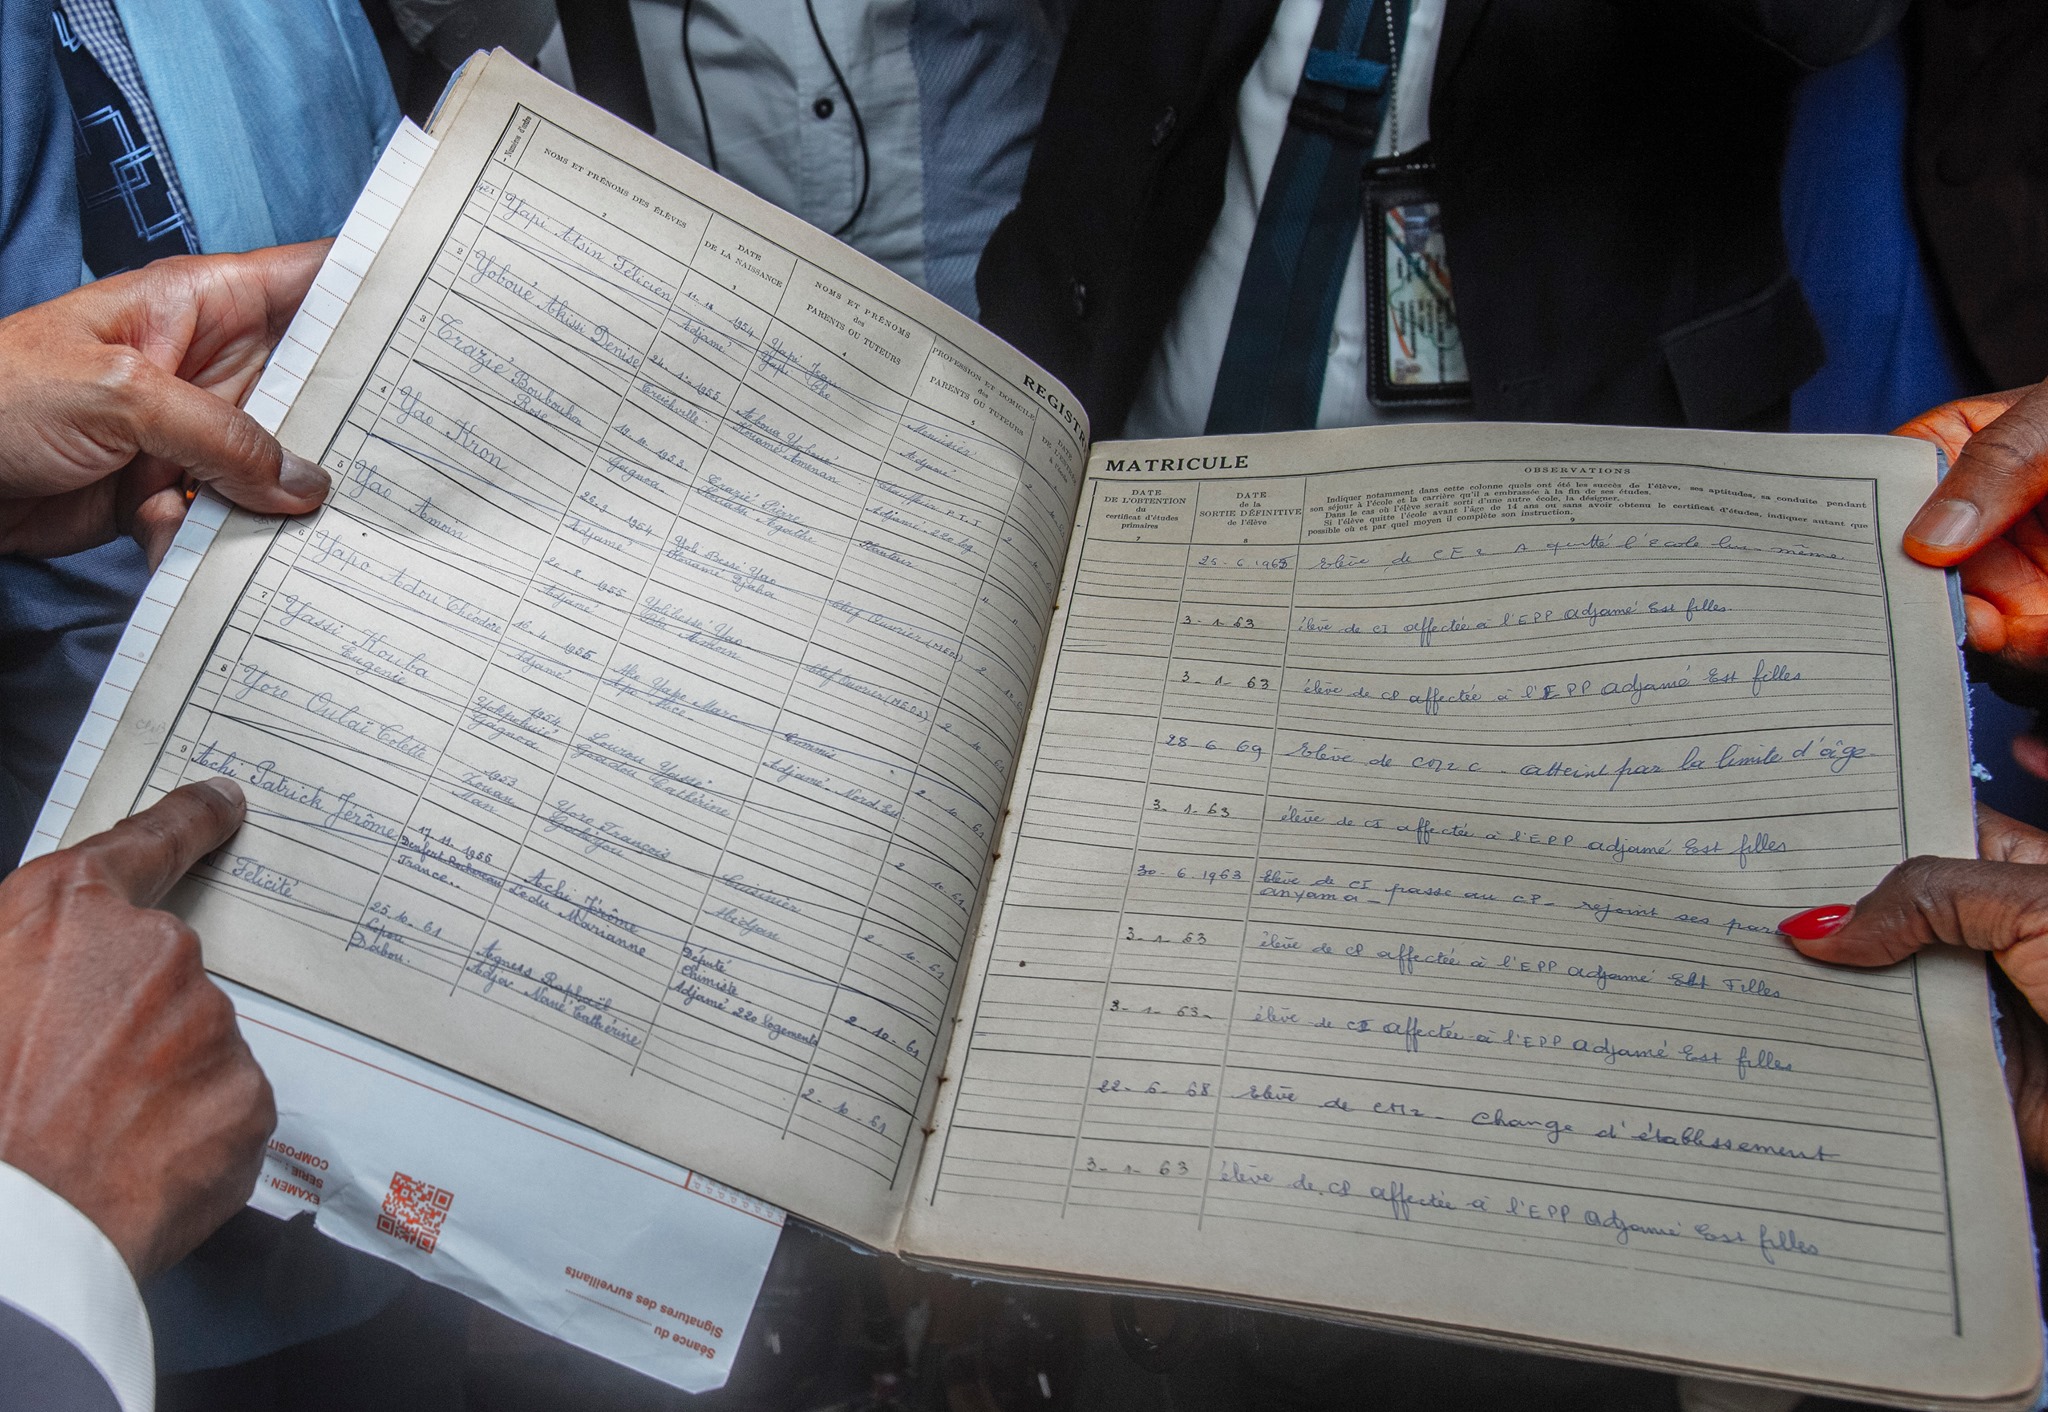 REGISTR
Numéro d'ordre
NOMS ET PRÉNOMS DES ÉLÈVES
2
DATE
DE LA NAISSANCE
3
NOMS ET PRÉNOMS
des
PARENTS OU TUTEURS
4
PROFESSION ET DOMICILE
des
PARENTS OU TUTEURS
5
DATE
421
Yapi Atsin Félicien
1954
Adjamé
Yapi
Menuisier
Adjamé
2
Yoboué Akissi Denise
24. 1. 1955
Treichville.
Aboua Yoboué
Kouamé Amenan
Chauffeur P.T.T
Adjamé-220 log
3
Trazié Boubouhon
Rose
1953
Gagnoa.
Trazié Pierre
Agathe
Planteur
4
Yao Kron
26. 9. 1954
Adjamé
Yoli Bessé Yao
Kouamé Djaha
Chef Ouvrier (MECA)
5
Yao Amoin
20. 8. 1955
Adjamé
Yolibessé Yao
Amoin
Chef Ouvrier (MECA)
6
Yapo Adou Théodore
16. 4. 1955
Adjamé
Ako Yapo Marc
Apo Alice
Commis
Adjamé-Nord Est
2 - 10. 61
7
Yassi Kouba
Eugenie
1954
Gagnoa
Lourou Yassi
Gaadou Cathérine
2 10. 61
8
Yoro Oulaï Colette
1953
Man
Yoro François
Cuisinier
Abidjan
2 10. 61
9
Achi Patrick Jérôme
17. 11. 1956
Denfert Rochereau
France..
Achi Jérôme
Ledu Marianne
Député
Chimiste
Adjamé 220 logements
2 - 10 - 61
Félicité
25. 10. 61
Dabou.
Agness Raphaël
Adjov Naué Cathérine
2 - 10 - 61
MATRICULE
DATE
DE L'OBTENTION
du
certificat d'études
primaires
7
DATE
de la
SORTIE DÉFINITIVE
de l'élève
8
OBSERVATIONS
Indiquer notamment dans cette colonne quels ont été les succès de l'élève, ses aptitudes, sa conduite pendant
son séjour à l'école et la carrière qu'il a embrassée à la fin de ses études.
Dans le cas où l'élève serait sorti d'une autre école, la désigner.
Si l'élève quitte l'école avant l'âge de 14 ans ou sans avoir obtenu le certificat d'études, indiquer autant que
possible où et par quel moyen il complète son instruction.
9
25 - 6 1965 Elève de CE2 A quitté l'école lui-même
3- 1. 63 élève de CI affectée à l'EPP Adjamé Est filles
3 - 1. 63 élève de CP affectée à l'EPP Adjamé Est filles
28 - 6 69 Elève de CM2 C. atteint par la limite d'âge
3- 1. 63 élève de CI affectée à l'EPP Adjamé Est filles
30 - 6 . 1963 Elève de CI passe au CP - rejoint ses par
anyama -
3- 1. 63 élève de CP affectée à l'EPP Adjamé Est Filles
3- 1- 63- élève de CI affectée à l'EPP Adjamé Est filles
22- 6 - 68 Elève de CM2 - Change d'établissement
3- 1. 63 élève de CP affectée à l'EPP Adjamé Est filles
EXAMEN :
SERIE :
COMPOSIT
Séance du
Signatures des surveillants